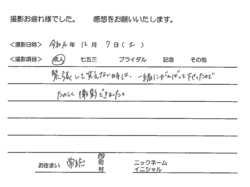 撮影お疲れ様でした。 感想をお願いいたします。
<撮影日時> 令和元年 12月 7日(土)
<撮影項目> 成人 七五三 ブライダル 記念 その他
緊張して笑えない時も、一緒にがんばって下さったので
たのしく撮影できました。
お住まい 市 町 村 ニックネーム イニシャル